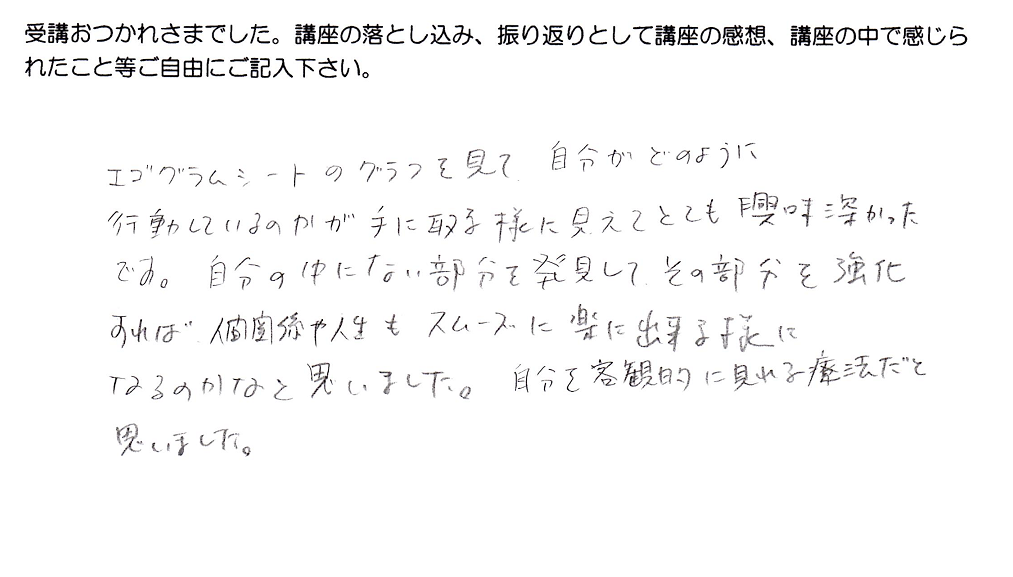 受講おつかれさまでした。講座の落とし込み、振り返りとして講座の感想、講座の中で感じら
れたこと等ご自由にご記入下さい。
エゴグラムシートのグラフを見て、自分がどのように
行動しているのかが手に取る様に見えてとても興味深かった
です。自分の中にない部分を発見して、その部分を強化
すれば、人間関係や人生もスムーズに楽に出来る様に
なるのかなと思いました。自分を客観的に見れる療法だと
思いました。